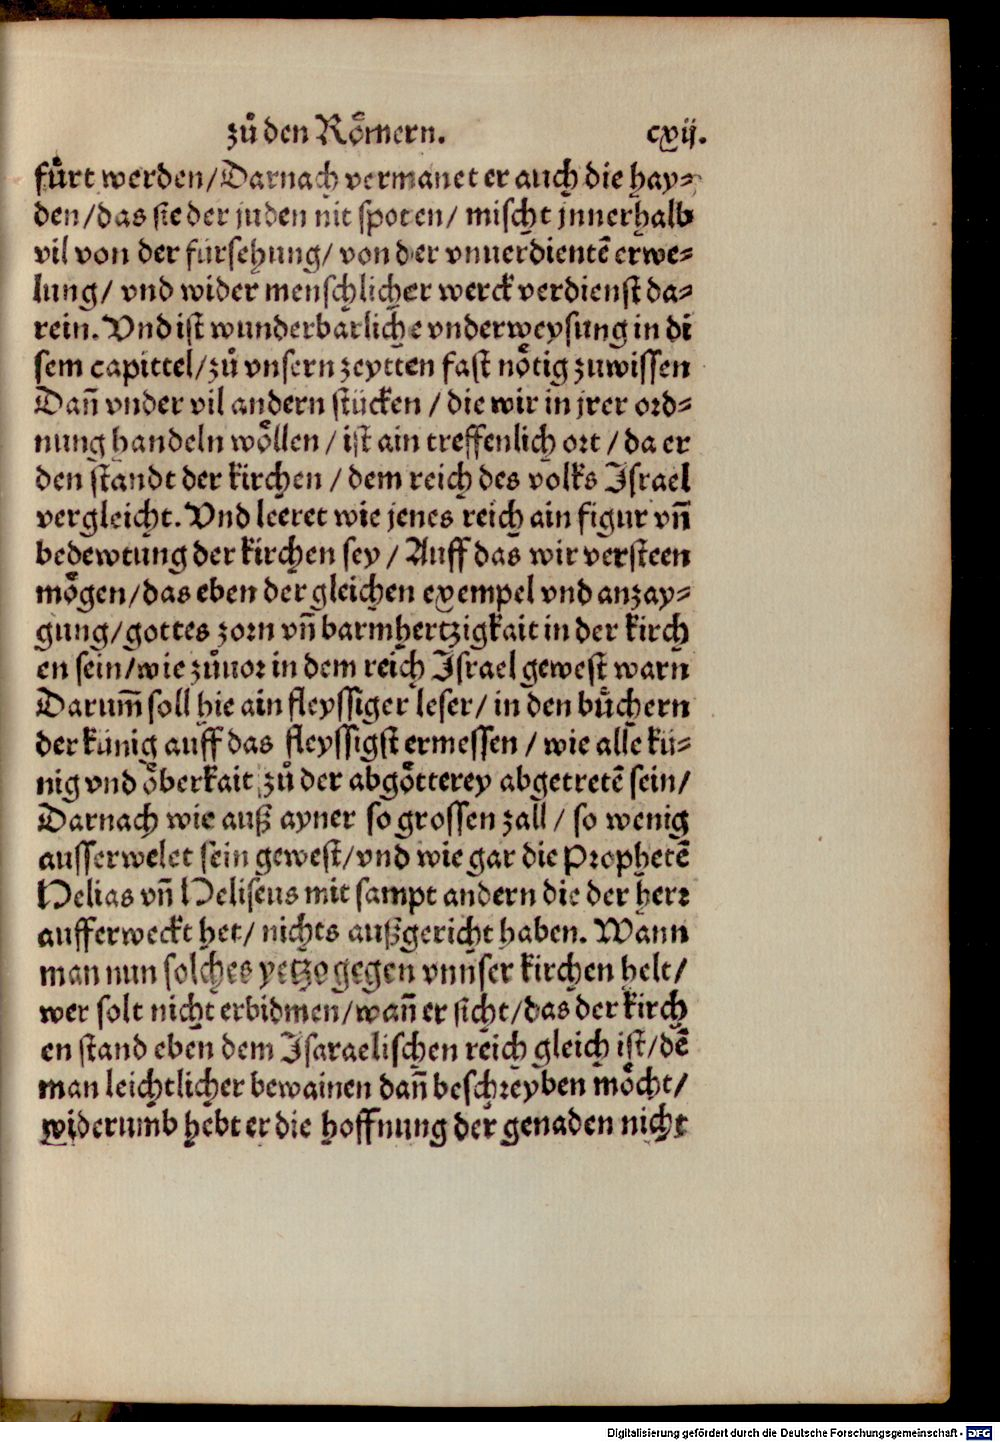 zů den Roͤmern. cxij.
fuͤrt werden/Darnach vermanet er auch die hay⸗
den/das sie der juden nit spoten/ mischt jnnerhalb
vil von der fürsehung/ von der vnuerdientē erwe⸗
lung/ vnd wider menschlicher werck verdienst da⸗
rein. Vnd ist wunderbarliche vnderweysung in di
sem capittel/zů vnsern zeytten fast noͤtig zuwissen
Dañ vnder vil andern stücken / die wir in jrer ord⸗
nung handeln woͤllen / ist ain treffenlich ort / da er
den standt der kirchen / dem reich des volks Israel
vergleicht. Vnd leeret wie jenes reich ain figur vñ
bedewtung der kirchen sey / Auff das wir versteen
moͤgen/das eben der gleichen exempel vnd anzay⸗
gung/gottes zorn vñ barmhertzigkait in der kirch
en sein/wie zůuor in dem reich Israel gewest warn
Darum̄ soll hie ain fleyssiger leser/ in den buͤchern
der künig auff das fleyssigst ermessen / wie alle kü⸗
nig vnd oͤberkait zů der abgoͤtterey abgetretē sein/
Darnach wie auß ayner so grossen zall / so wenig
ausserwelet sein gewest/vnd wie gar die Prophetē
Helias vñ Heliseus mit sampt andern die der herr
aufferweckt het/ nichts außgericht haben. Wann
man nun solches yetzo gegen vnnser kirchen helt/
wer solt nicht erbidmen/wañ er sicht/das der kirch
en stand eben dem Isaraelischen reich gleich ist/dē
man leichtlicher bewainen dañ beschreyben moͤcht/
widerumb hebt er die hoffnung der genaden nicht
Digitalisierung gefördert durch die Deutsche Forschungsgemeinschaft - DFG